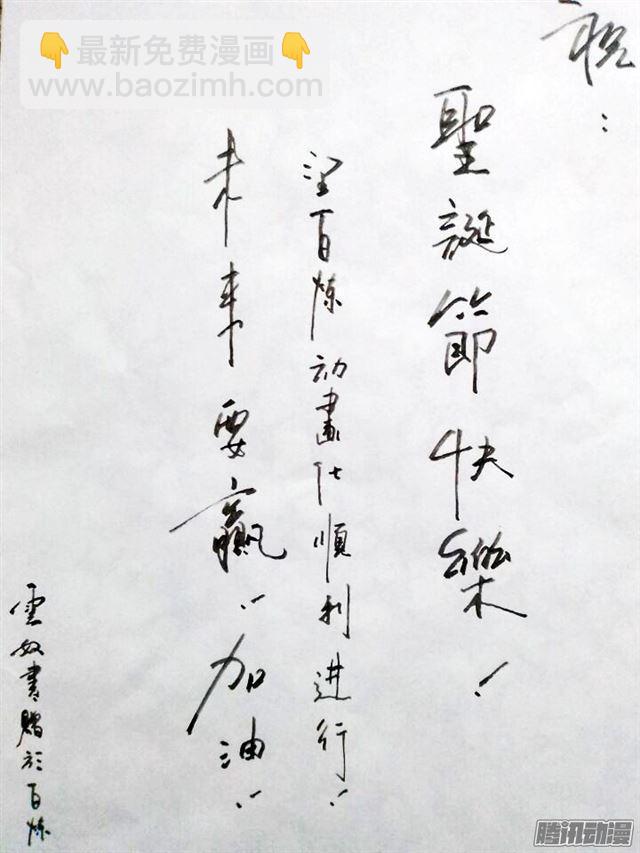 祝：
聖誕節快樂！
望百炼动畫化順利进行！
未来要赢！加油！
雲奴書贈於百炼
👇最新免费漫画👇
www.baozimh.com
腾讯动漫